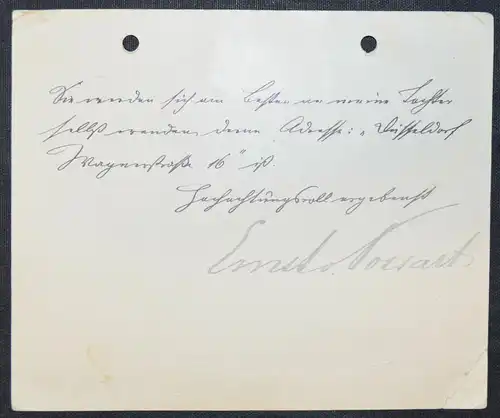 Sie werden sich am Besten an meine Tochter
selbst wenden, deren Adresse: "Düsseldorf
Wagnerstraße 16" ist.
Hochachtungsvoll ergebenst
Ernst v. Possart.